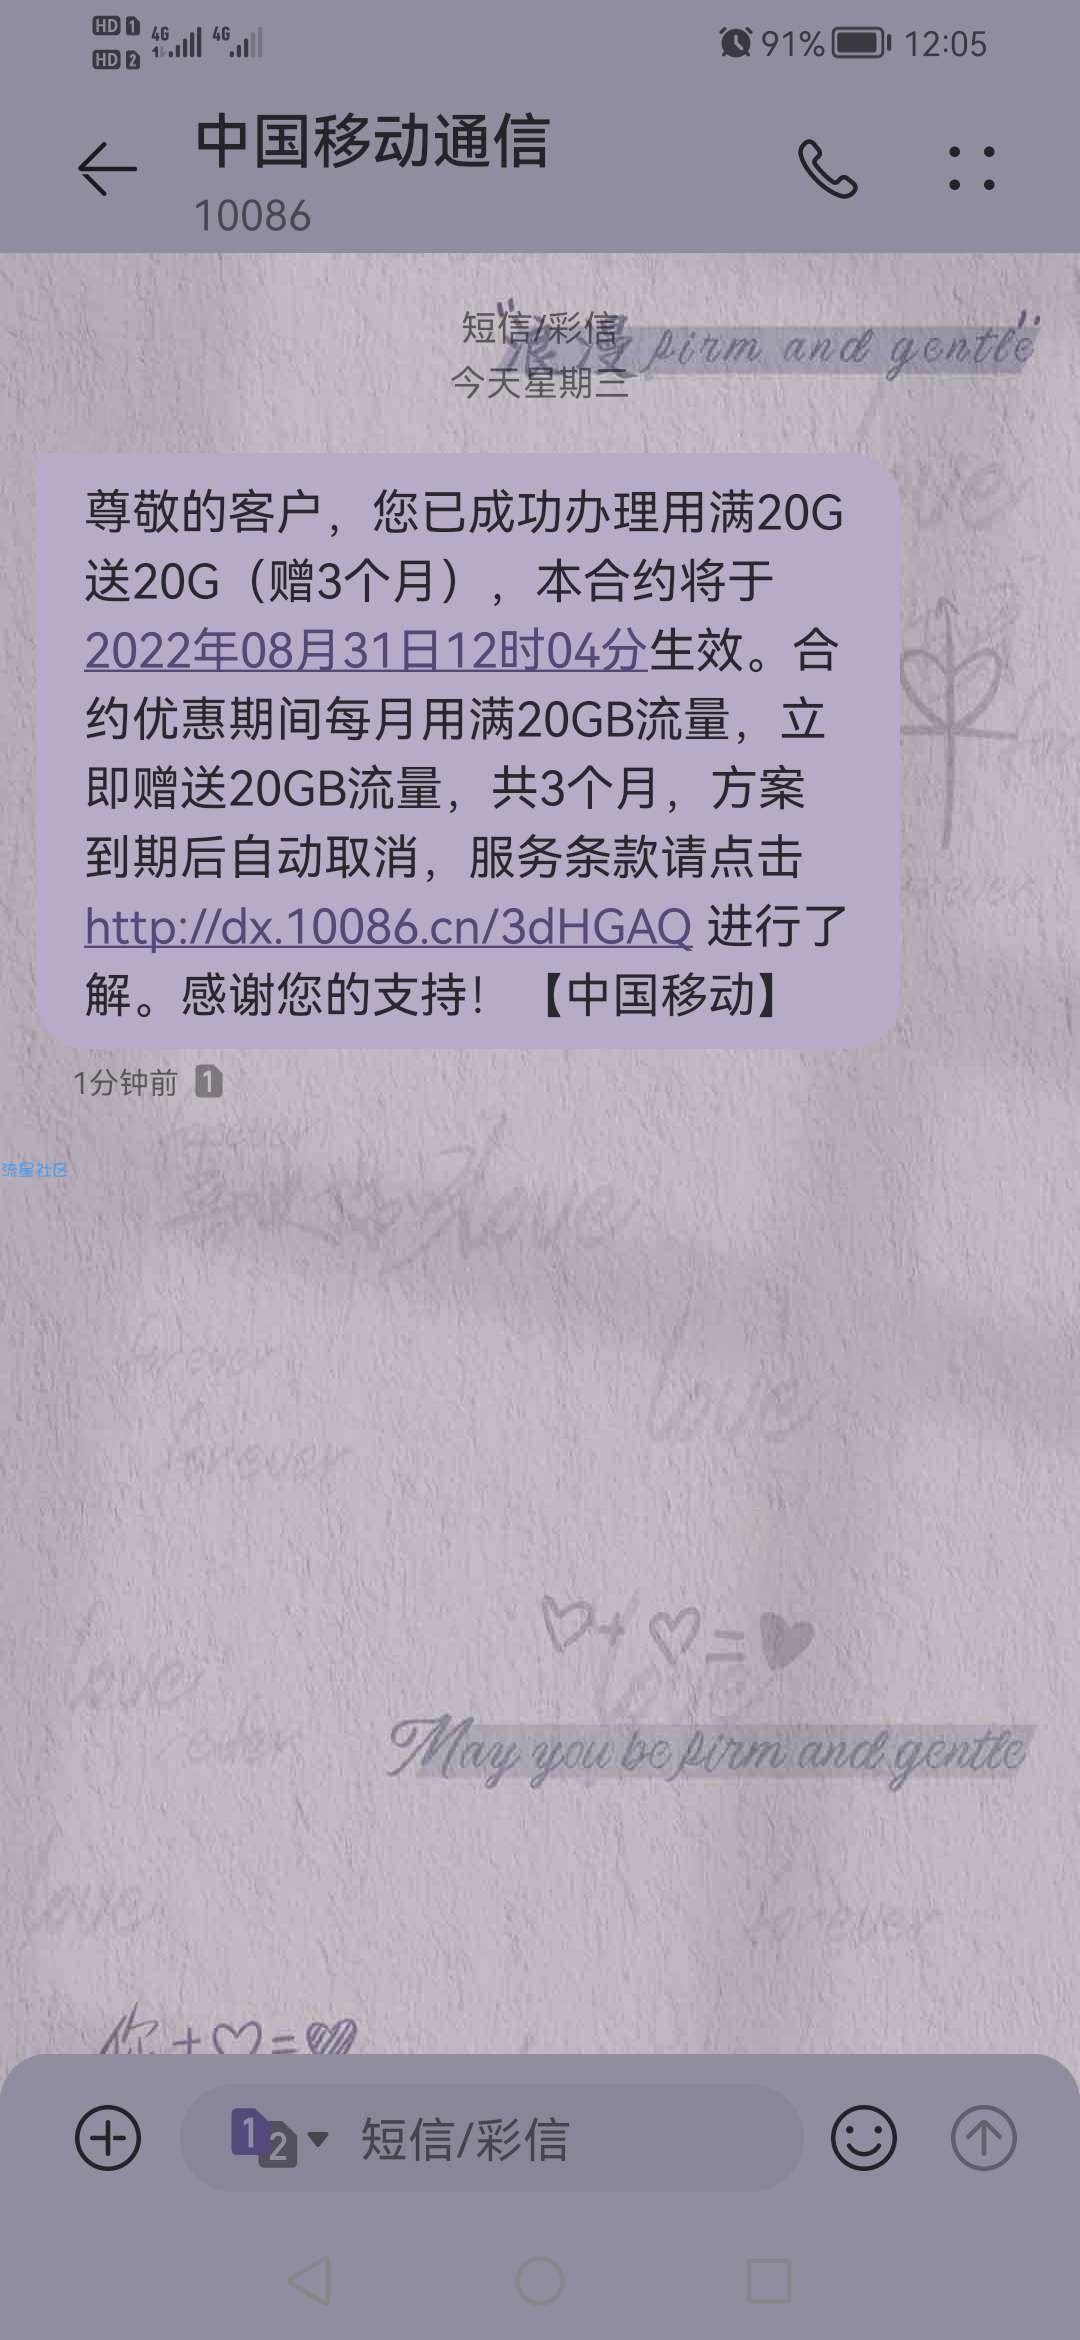 HD 1 4G 4G 91% 12:05
HD 2
中国移动通信
10086
短信/彩信
浪漫 firm and gentle
今天星期三
尊敬的客户，您已成功办理用满20G
送20G（赠3个月），本合约将于
2022年08月31日12时04分生效。合
约优惠期间每月用满20GB流量，立
即赠送20GB流量，共3个月，方案
到期后自动取消，服务条款请点击
http://dx.10086.cn/3dHGAQ 进行了
解。感谢您的支持！【中国移动】
forever
1分钟前 1
流星社区
love
forever
love
forever
love
May you be firm and gentle
love
forever
你+♡=
1 2 短信/彩信